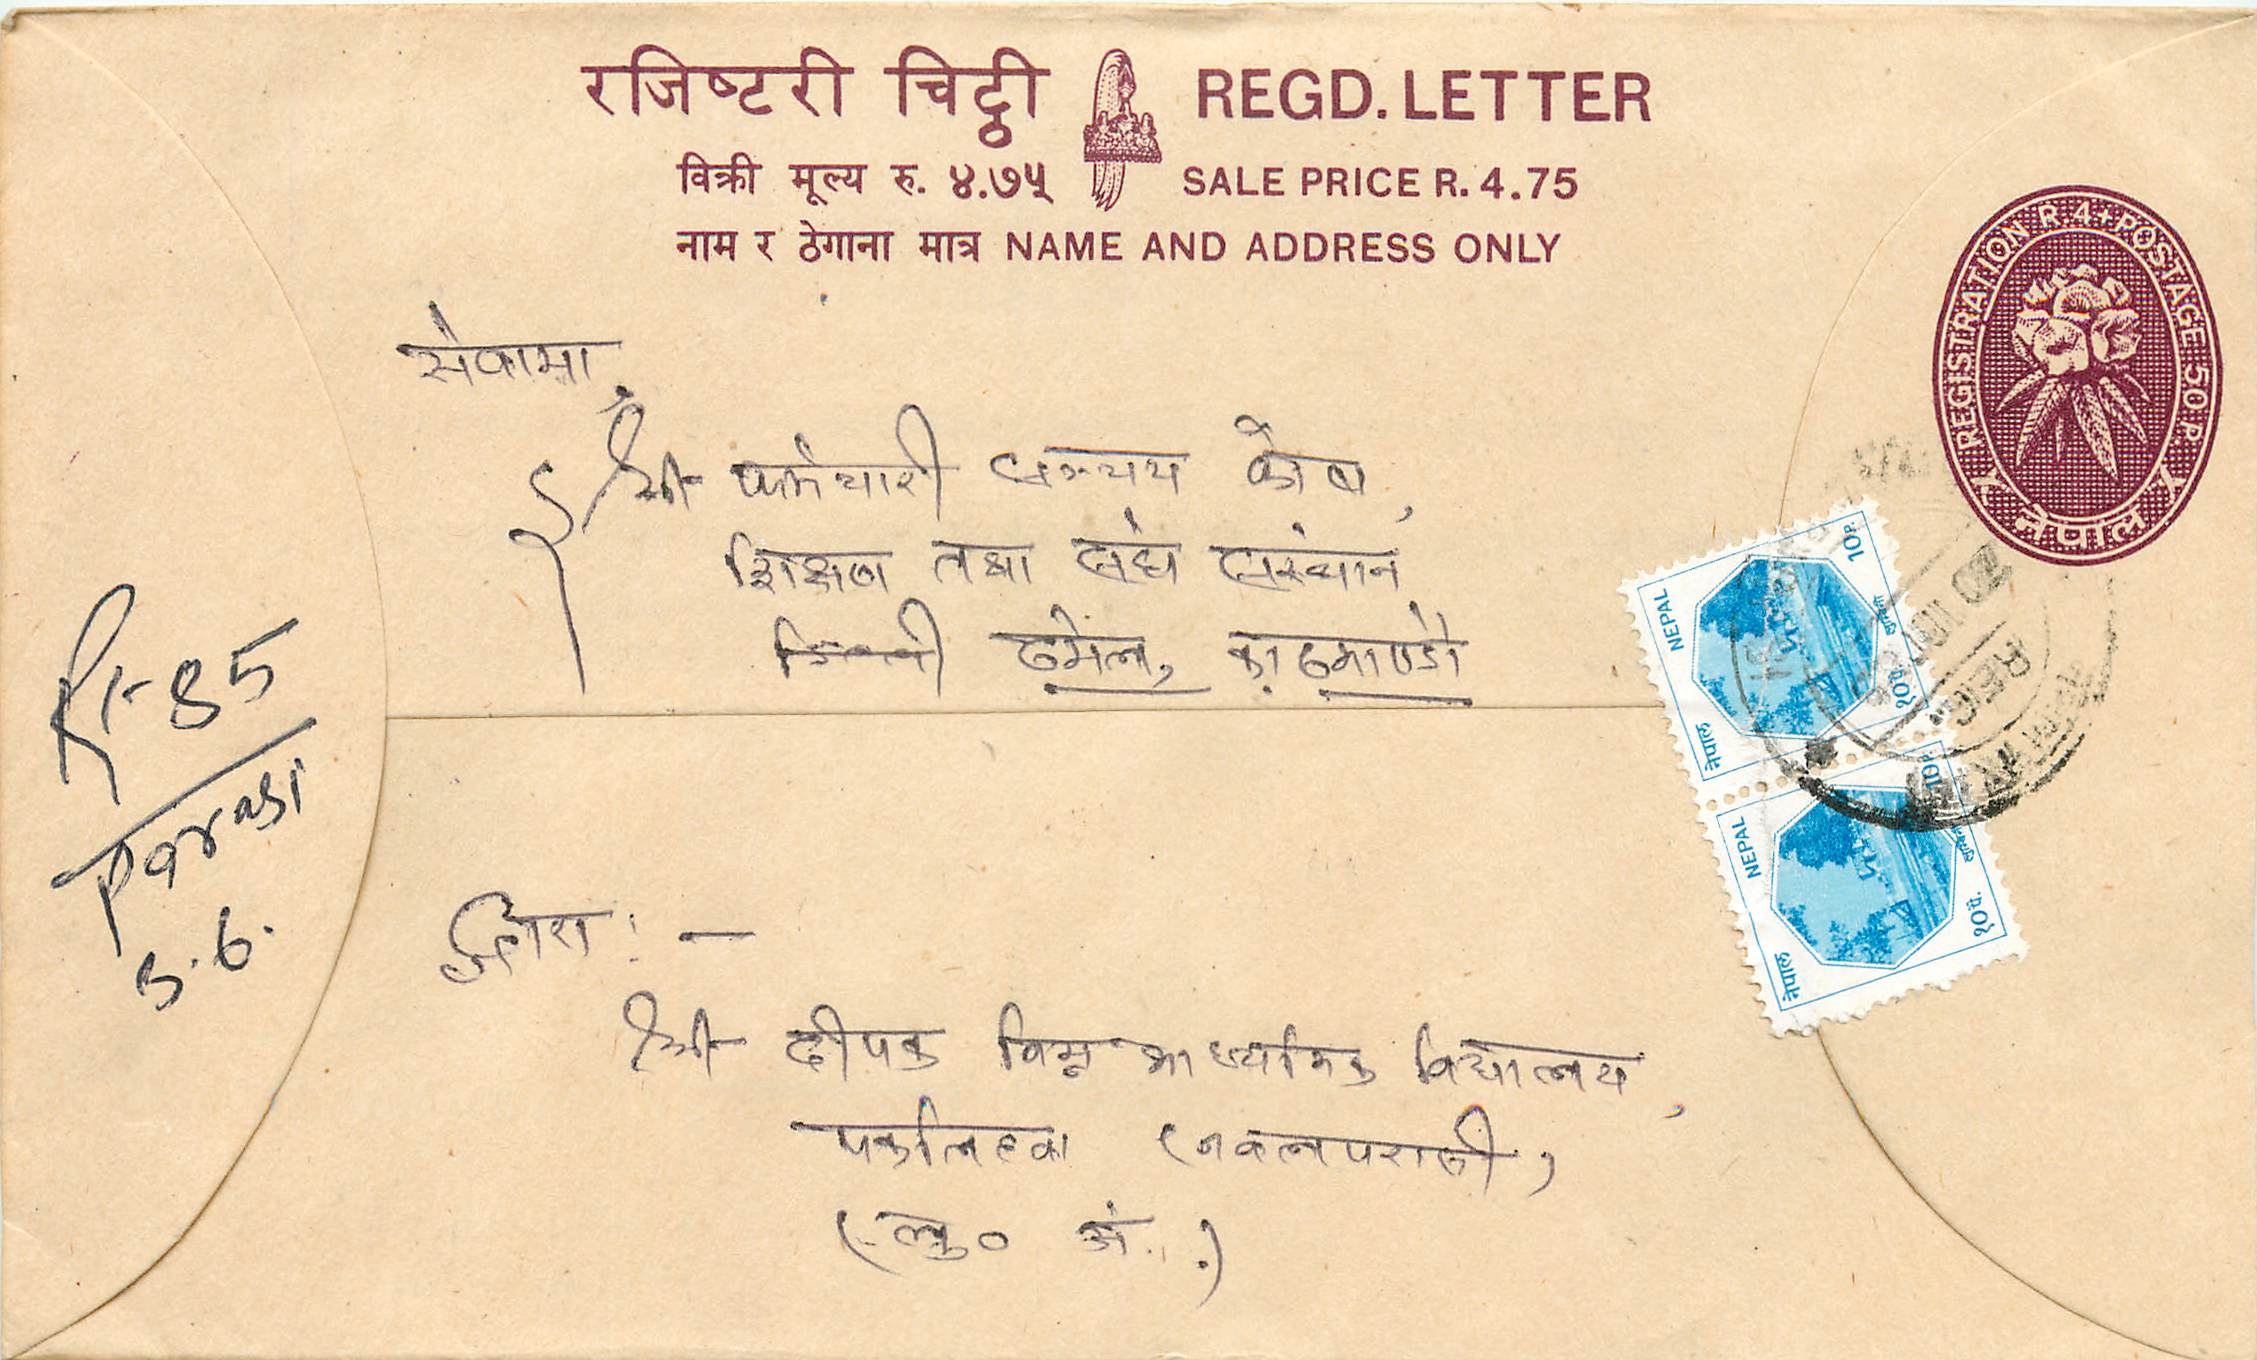 रजिष्टरी चिट्ठी REGD. LETTER
विक्री मूल्य रु. ४.७५ SALE PRICE R. 4.75
नाम र ठेगाना मात्र NAME AND ADDRESS ONLY
REGISTRATION R. 4+POSTAGE 50 P.
नेपाल
सेवामा,
श्री कर्मचारी सञ्चय कोष,
शिक्षण तथा संघ संस्थान
ठमेल, काठमाण्डौ
NEPAL 10P.
नेपाल १०पै.
NEPAL 10P.
नेपाल १०पै.
REG.
85
Parasi
5.6.
द्वारा :-
श्री दीपक निम्न माध्यमिक विद्यालय,
पकलिहवा (नवलपरासी)
(लु० अं.)